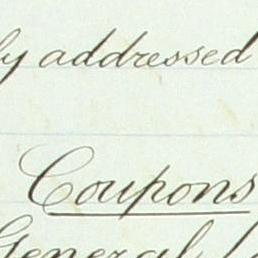 addressed
Coupons
General